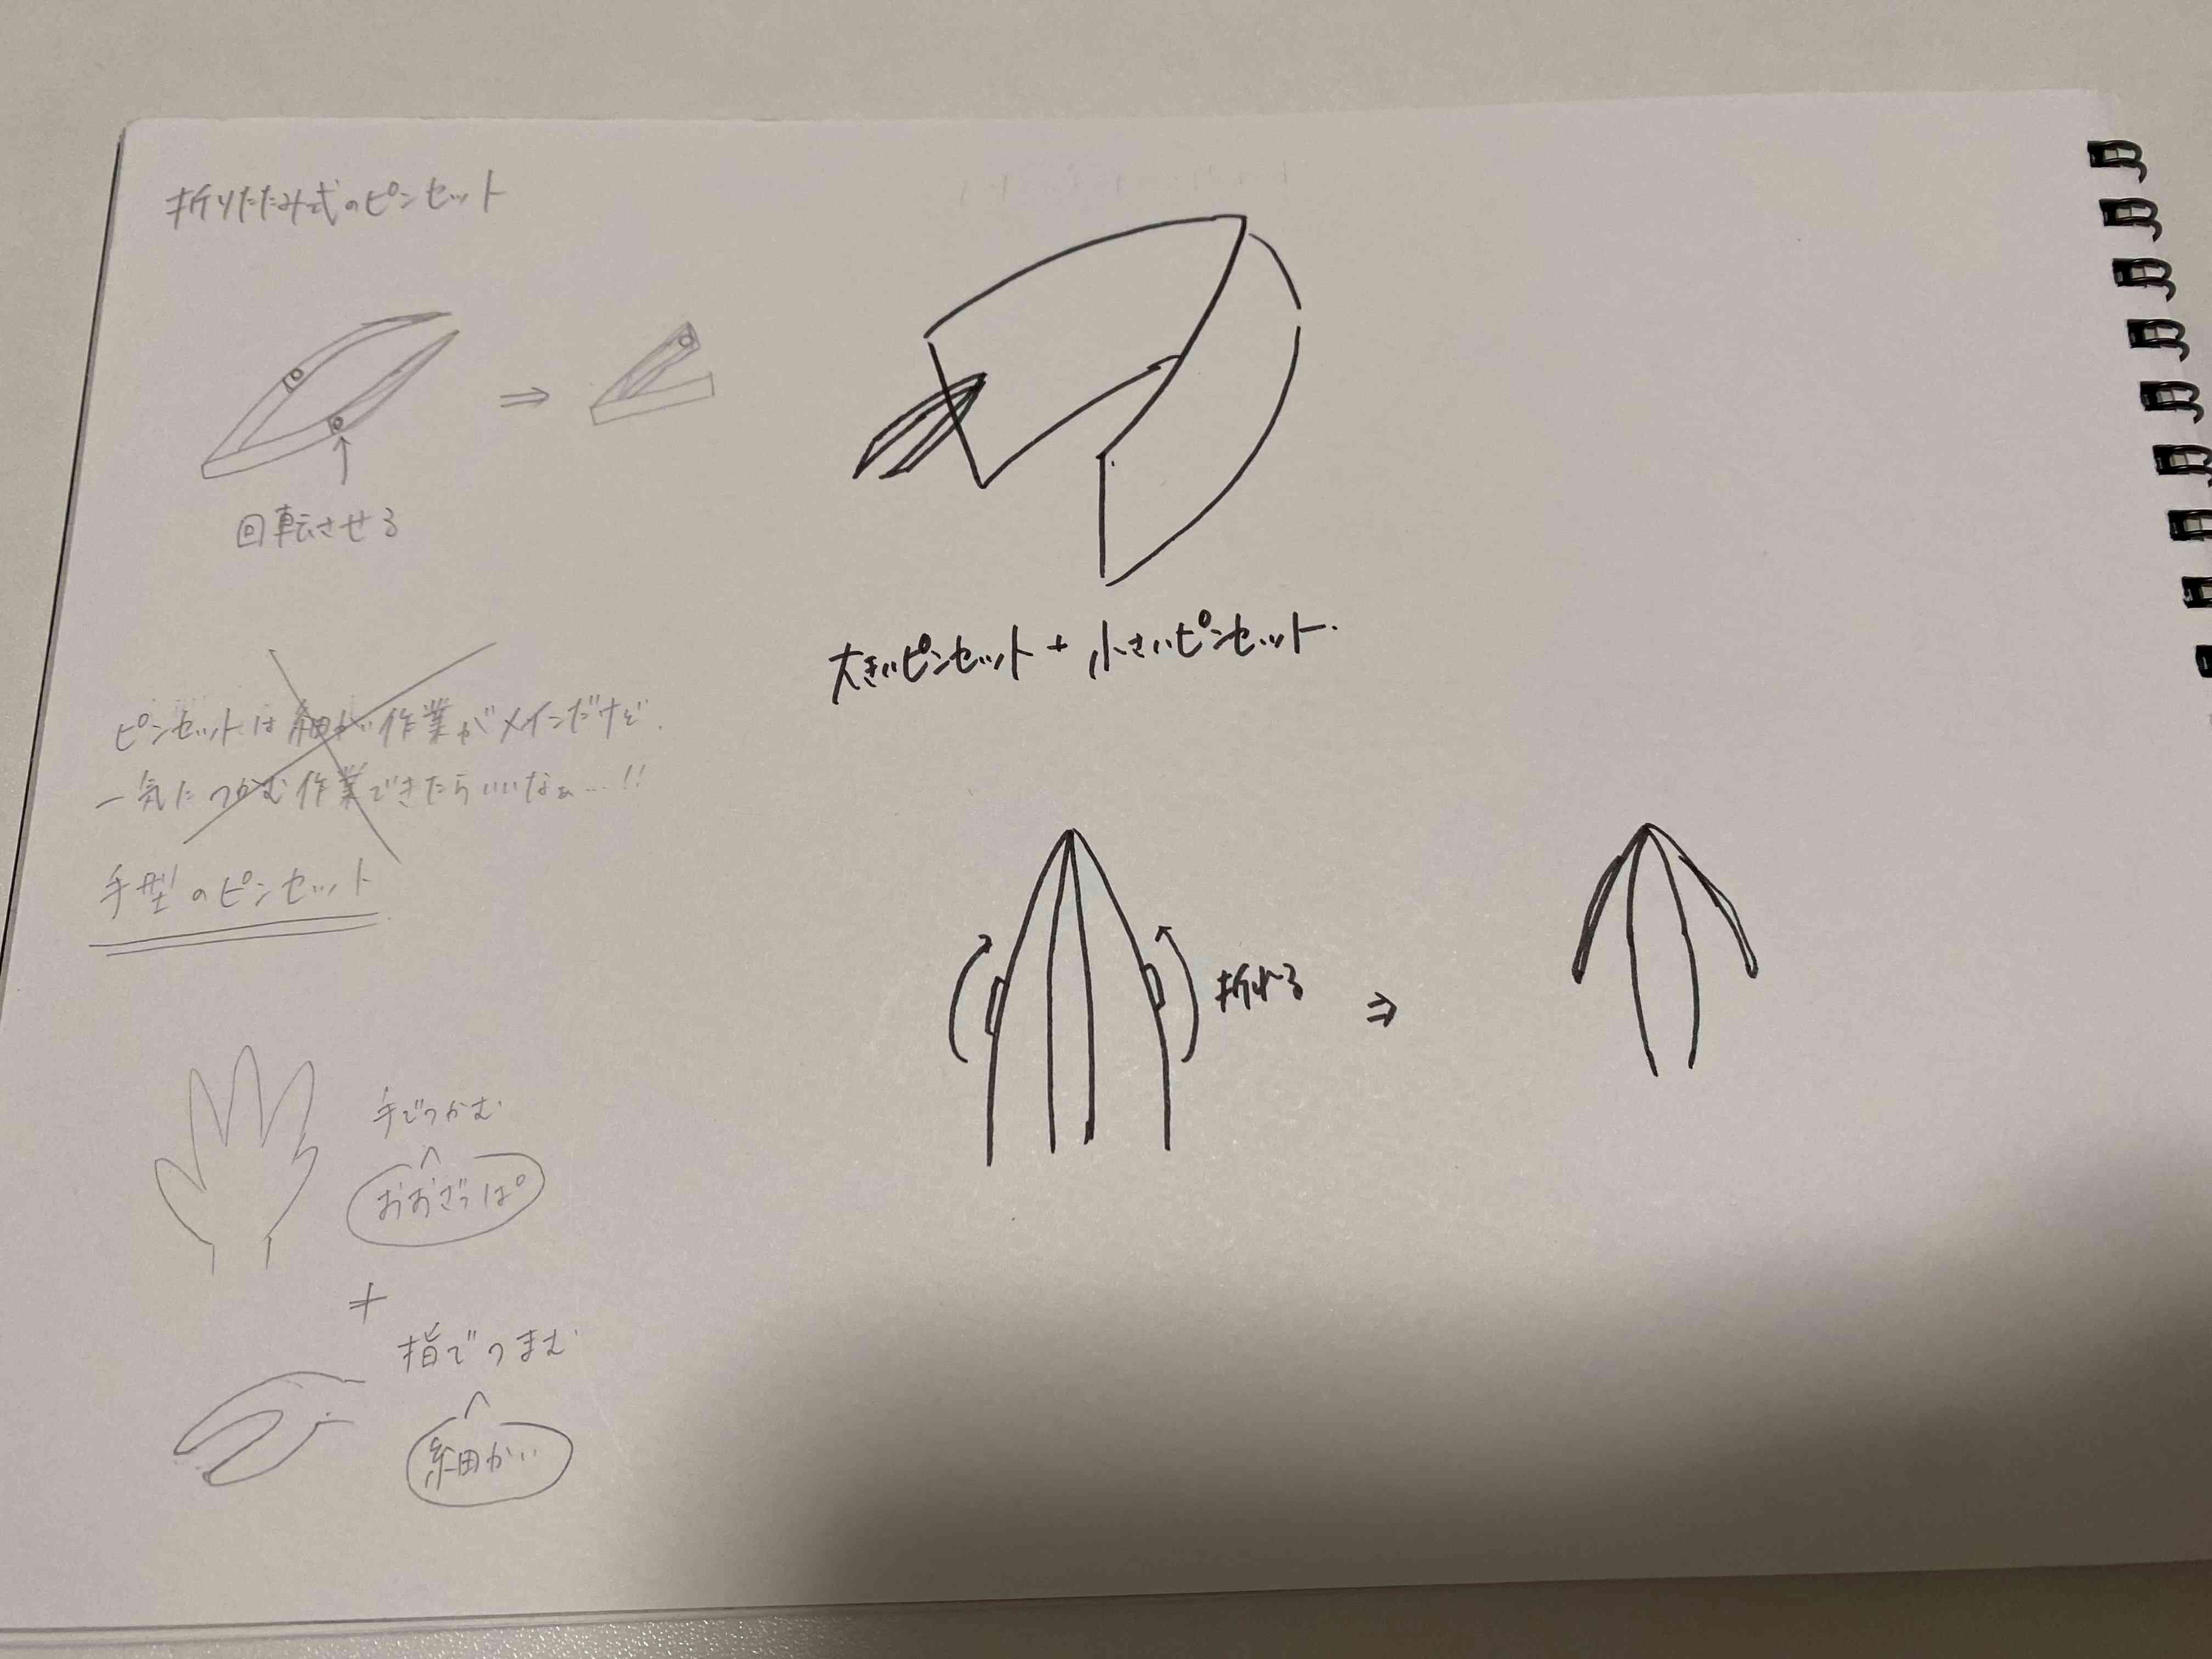 折りたたみ式のピンセット
⇒
回転させる
ピンセットは細かい作業がメインだけど.
一気につかむ作業できたらいいなぁ…!!
手型のピンセット
手でつかむ
おおざっぱ
+
指でつまむ
細かい
大きいピンセット + 小さいピンセット.
折れる ⇒